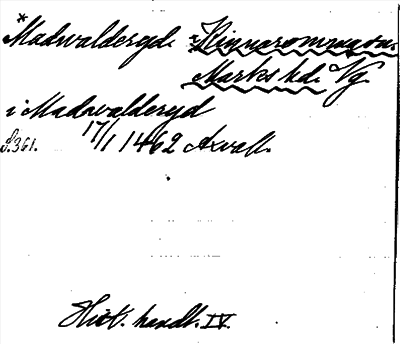 * Madvaldaryd. i Kinnaromma sn.
Marks hd. Vg.
i Madvaldaryd
S. 361. 17/1 1462 Axvall.
Hist. handl. IV.